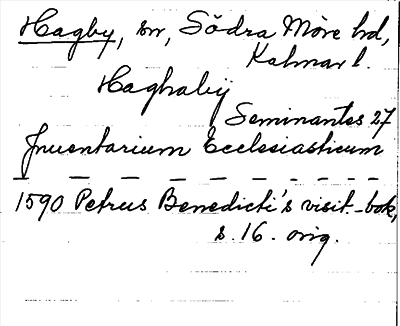 Hagby, sn, Södra Möre hd,
Kalmar l.
Haghabÿ
Seminantes 27
Inventarium Ecclesiasticum
1590 Petrus Benedicti's visit.-bok,
s. 16. orig.